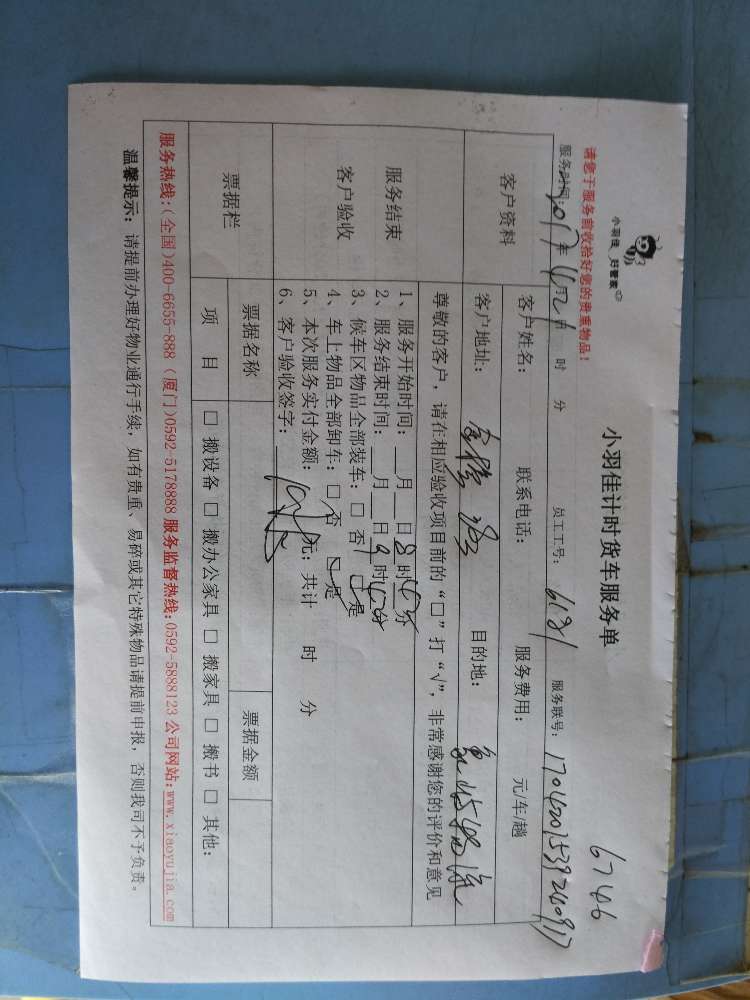 小羽佳 好管家
6746
小羽佳计时货车服务单
请您于服务前收拾好您的贵重物品！
服务时间：2017年4月21日 时 分 员工工号：6181 服务联号：
客户资料 客户姓名： 联系电话： 服务费用： 元/车/趟
客户地址： 目的地：
尊敬的客户，请在相应验收项目前的“□”打“√”，非常感谢您的评价和意见
服务结束
客户验收
1、服务开始时间：__月__日8时40分
2、服务结束时间：__月__日9时40分
3、候车区物品全部装车：□ 否 □是
4、车上物品全部卸车：□ 否 □是
5、本次服务实付金额： 元；共计 时 分
6、客户验收签字：
票据栏 票据名称 票据金额
项 目 □ 搬设备 □ 搬办公家具 □ 搬家具 □ 搬书 □ 其他：
服务热线：(全国)400-6655-888 (厦门)0592-5178888 服务监督热线：0592-5888123 公司网站：www.xiaoyujia.com
温馨提示：请提前办理好物业通行手续，如有贵重、易碎或其它特殊物品请提前申报，否则我司不予负责。